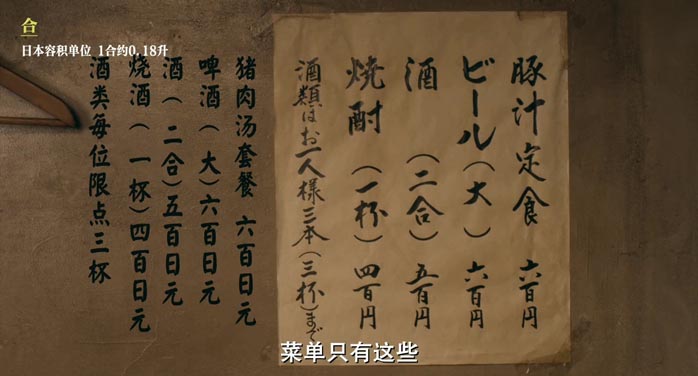 合
日本容积单位 1合约0.18升
豚汁定食 六百円
ビール(大) 六百円
酒 (二合) 五百円
焼酎 (一杯) 四百円
酒類はお一人様三本(三杯)まで
猪肉汤套餐 六百日元
啤酒(大)六百日元
酒(二合)五百日元
烧酒(一杯)四百日元
酒类每位限点三杯
菜单只有这些